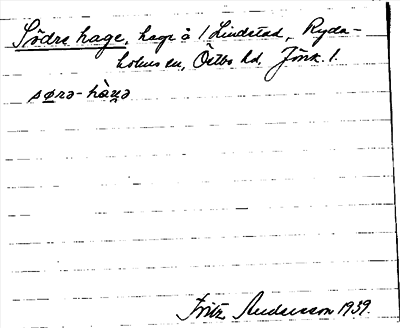 Södra hage, hage å 1 Lindstad, Ryda-
holms sn, Östbo hd, Jönk. l.
sørə-hàgə
Fritz Andersson 1939.